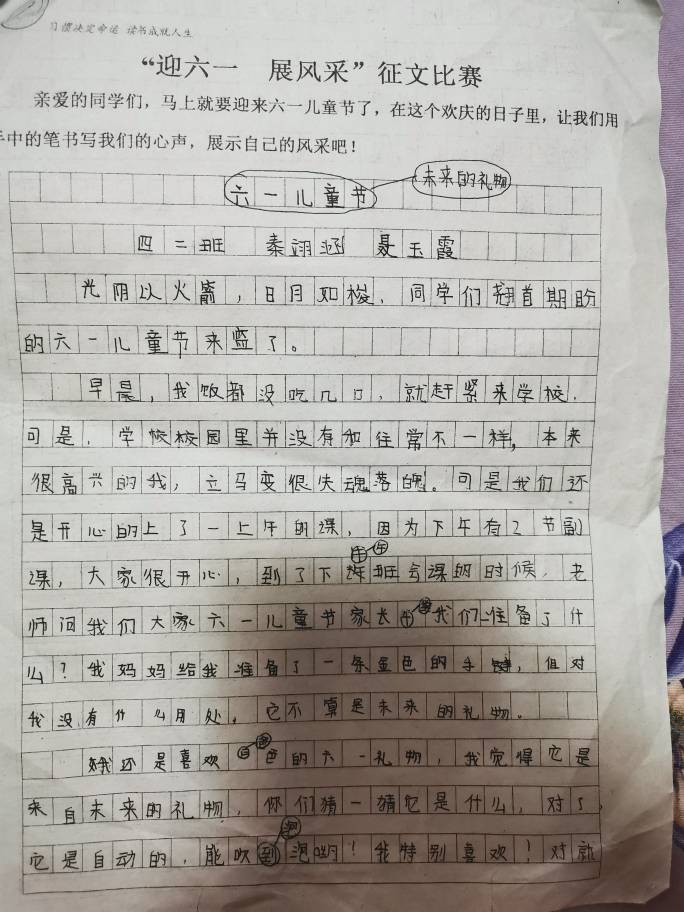 习惯决定命运 读书成就人生
“迎六一 展风采”征文比赛
亲爱的同学们，马上就要迎来六一儿童节了，在这个欢庆的日子里，让我们用
手中的笔书写我们的心声，展示自己的风采吧！
六一儿童节 未来的礼物
四二班 秦翊涵 聂玉霞
光阴以火箭，日月如梭，同学们翘首期盼
的六一儿童节来临了。
早晨，我饭都没吃几口，就赶紧来学校，
可是，学校校园里并没有和往常不一样，本来
很高兴的我，立马变很失魂落魄。可是我们还
是开心的上了一上午的课，因为下午有2节副
课，大家很开心，到了下午班会课的时候，老
师问我们大家六一儿童节家长给我们准备了什
么？我妈妈给我准备了一条金色的手链，但对
我没有什么用处，它不算是未来的礼物。
我还是喜欢白色的六一礼物，我觉得它是
来自未来的礼物，你们猜一猜它是什么，对了，
它是自动的，能吹到泡哟！我特别喜欢！对就